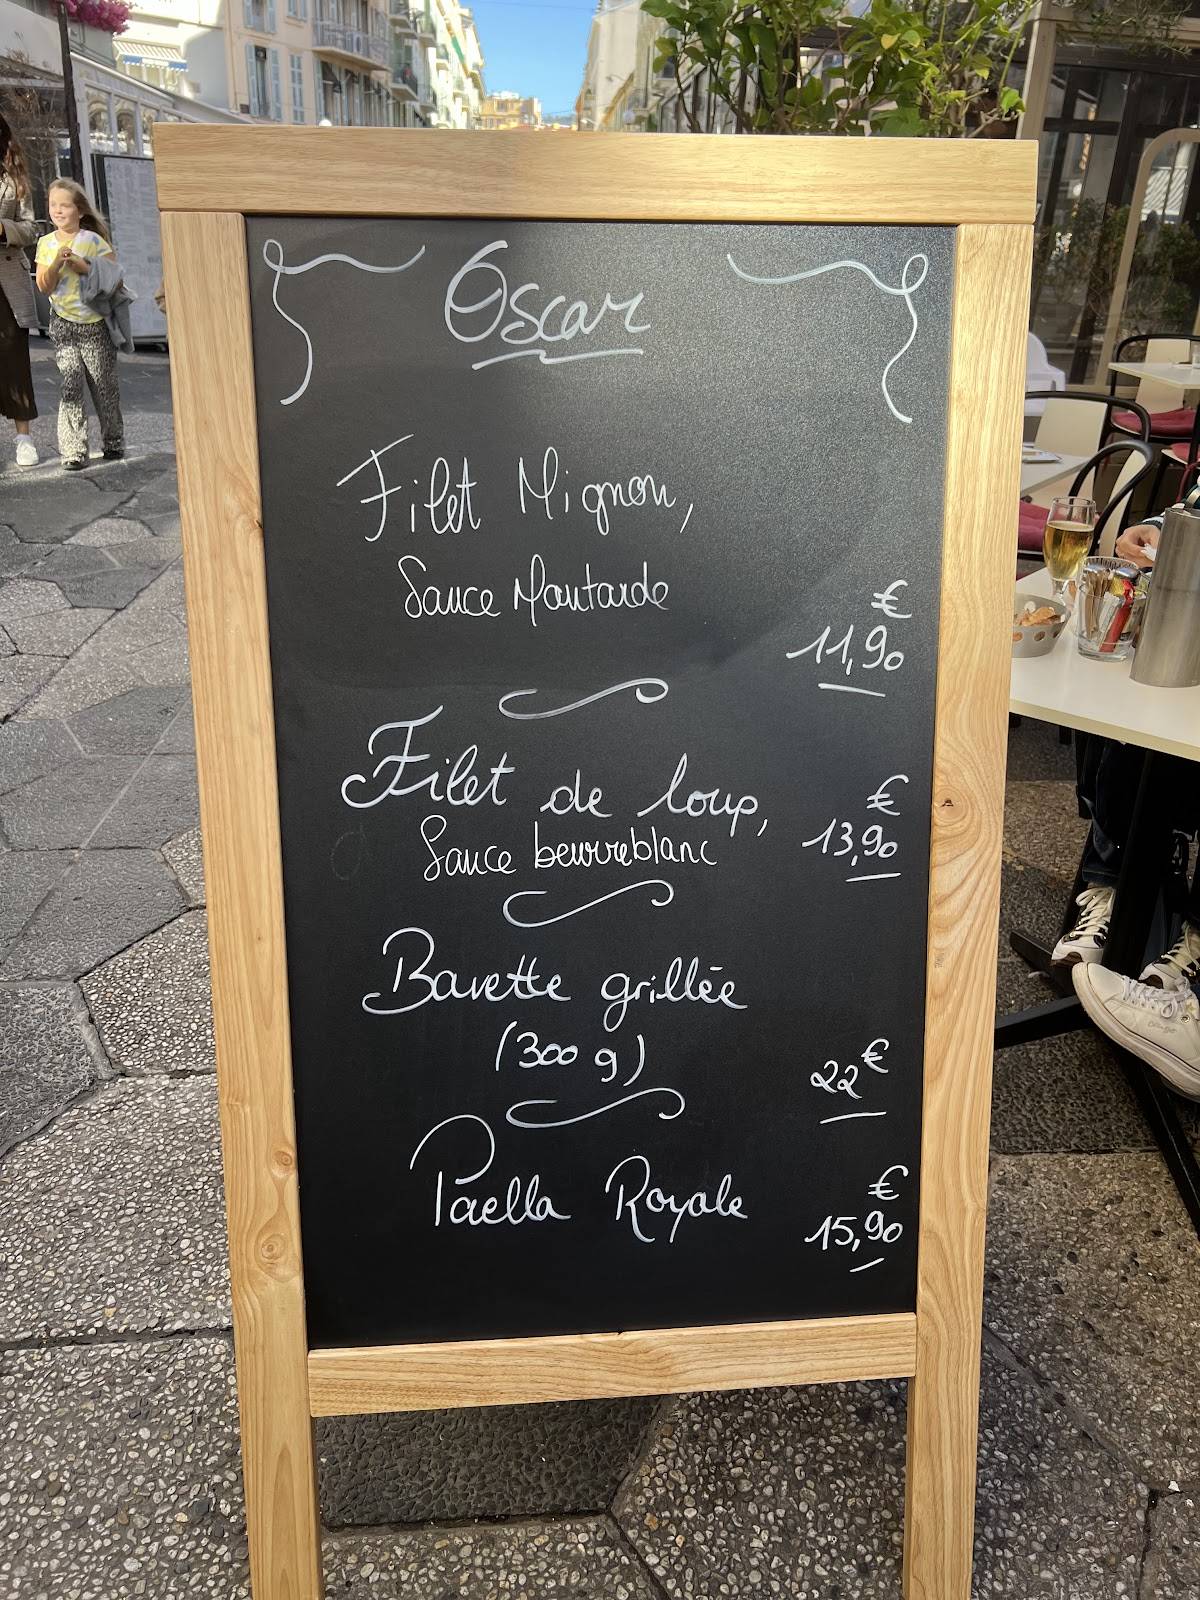 Oscar
Filet Mignon,
Sauce Moutarde
€
11,90
Filet de loup,
€
13,90
Sauce beurreblanc
Bavette grillée
(300 g)
22€
Paella Royale
€
15,90